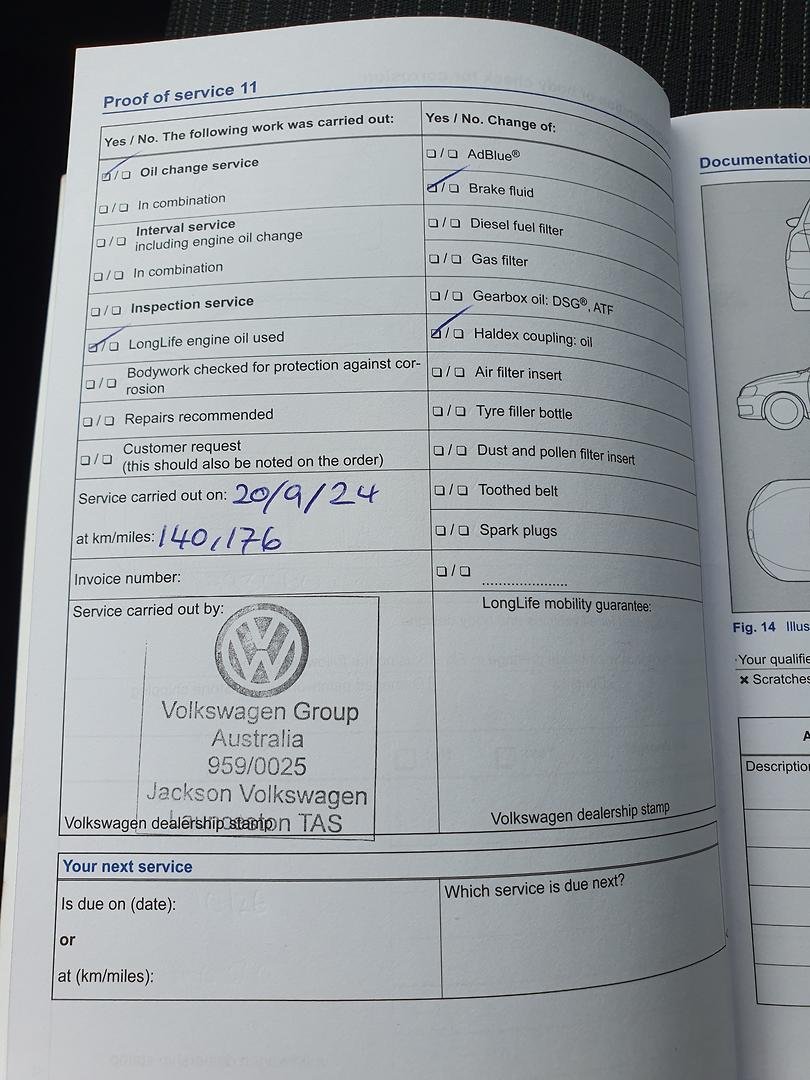 Proof of service 11
Yes / No. The following work was carried out:
☑/❏ Oil change service
❏/❏ In combination
❏/❏ Interval service
including engine oil change
❏/❏ In combination
❏/❏ Inspection service
☑/❏ LongLife engine oil used
❏/❏ Bodywork checked for protection against cor-
rosion
❏/❏ Repairs recommended
❏/❏ Customer request
(this should also be noted on the order)
Service carried out on: 20/9/24
at km/miles: 140,176
Invoice number:
Service carried out by:
Volkswagen Group
Australia
959/0025
Jackson Volkswagen
Launceston TAS
Volkswagen dealership stamp
Yes / No. Change of:
❏/❏ AdBlue®
☑/❏ Brake fluid
❏/❏ Diesel fuel filter
❏/❏ Gas filter
❏/❏ Gearbox oil: DSG®, ATF
☑/❏ Haldex coupling: oil
❏/❏ Air filter insert
❏/❏ Tyre filler bottle
❏/❏ Dust and pollen filter insert
❏/❏ Toothed belt
❏/❏ Spark plugs
❏/❏ ....................
LongLife mobility guarantee:
Volkswagen dealership stamp
Your next service
Is due on (date):
or
at (km/miles):
Which service is due next?
Documentation
Fig. 14 Illus
Your qualifie
✖ Scratches
A
Description